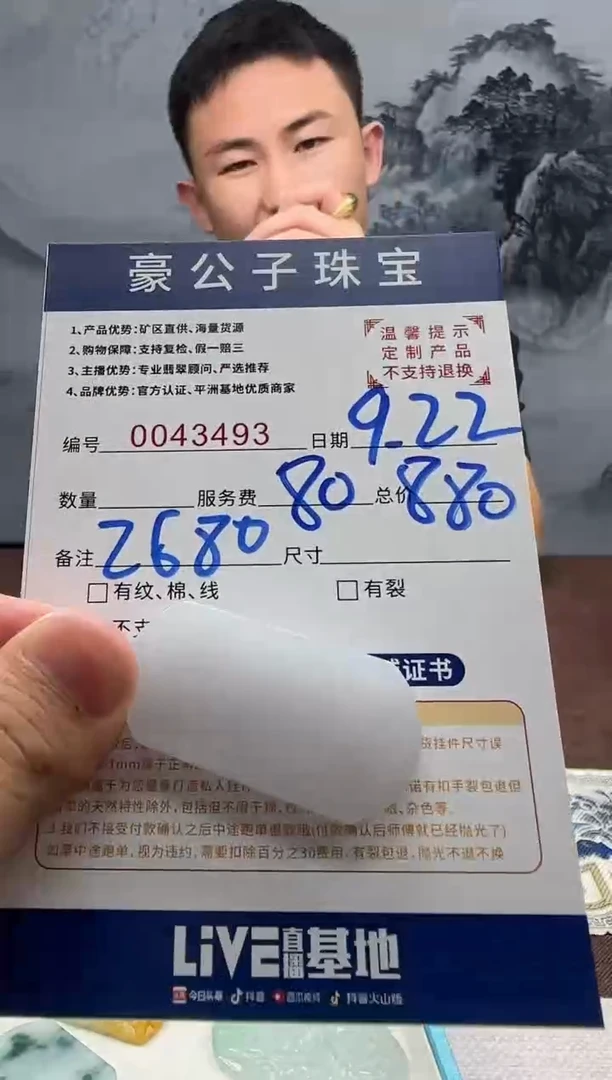 豪公子珠宝
1、产品优势:矿区直供、海量货源
2、购物保障:支持复检、假一赔三
3、主播优势:专业翡翠顾问、严选推荐
4、品牌优势:官方认证、平洲基地优质商家
温馨提示
定制产品
不支持退换
编号 0043493 日期 9.22
数量 服务费 80 总价 880
备注 2680 尺寸
有纹、棉、线 有裂
不支
证书
货挂件尺寸误
诺有扣手裂包退但
的天然特性除外,包括但不限于棉、 杂色等。
3.我们不接受付款确认之后中途跑单退款哦(付款确认后师傅就已经抛光了)
如果中途跑单,视为违约,需要扣除百分之30费用,有裂包退,抛光不退不换
LiVE直播基地
今日头条 抖音 西瓜视频 抖音火山版